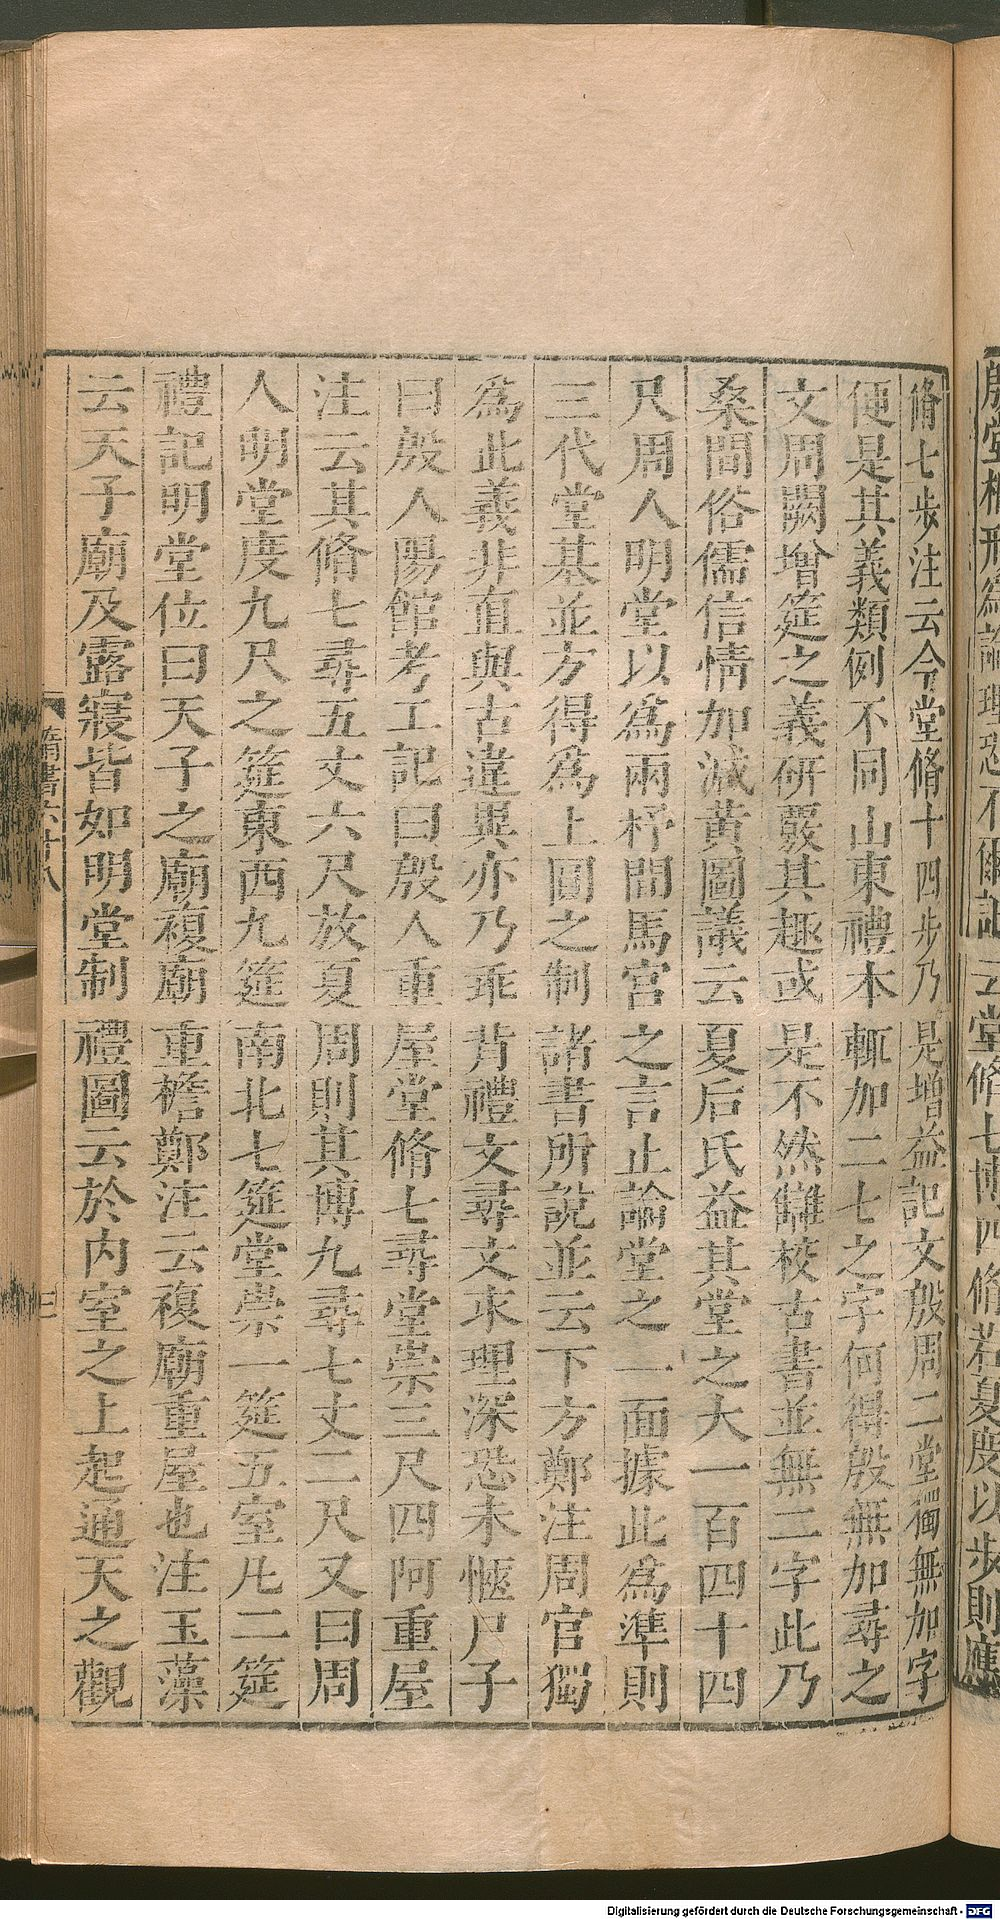 云堂脩七博四脩若夏度以步則應
脩七步注云今堂脩十四步乃是增益記文殷周二堂獨無加字
便是其義類例不同山東禮本輒加二七之字何得殷無加尋之
文周闕增筵之義研覈其趣或是不然讎校古書並無二字此乃
桑間俗儒信情加減黃圖議云夏后氏益其堂之大一百四十四
尺周人明堂以爲兩杼間馬宮之言止論堂之一面據此爲準則
三代堂基並方得爲上圓之制諸書所說並云下方鄭注周官獨
爲此義非直與古違異亦乃乖背禮文尋文求理深恐未愜尸子
曰殷人陽館考工記曰殷人重屋堂脩七尋堂崇三尺四阿重屋
注云其脩七尋五丈六尺放夏周則其博九尋七丈二尺又曰周
人明堂度九尺之筵東西九筵南北七筵堂崇一筵五室凡二筵
禮記明堂位曰天子之廟複廟重檐鄭注云複廟重屋也注玉藻
云天子廟及露寢皆如明堂制禮圖云於內室之上起通天之觀
隋書六十八
三
Digitalisierung gefördert durch die Deutsche Forschungsgemeinschaft - DFG